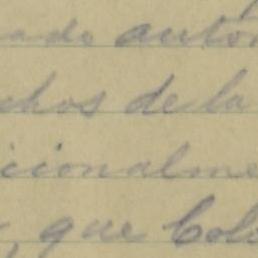 ado autón
chos de la
icionalme
, que Col